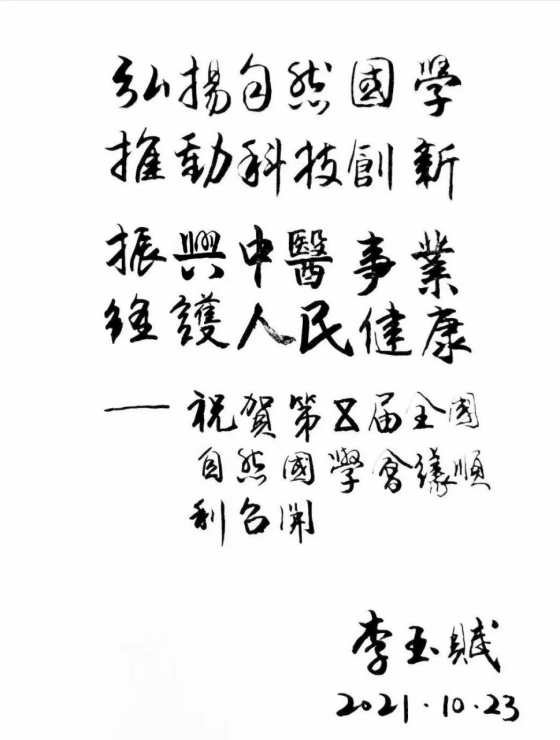 弘揚自然國學
推動科技創新
振興中醫事業
維護人民健康
——祝賀第五届全國
自然國學會議順
利召開
李玉賦
2021.10.23